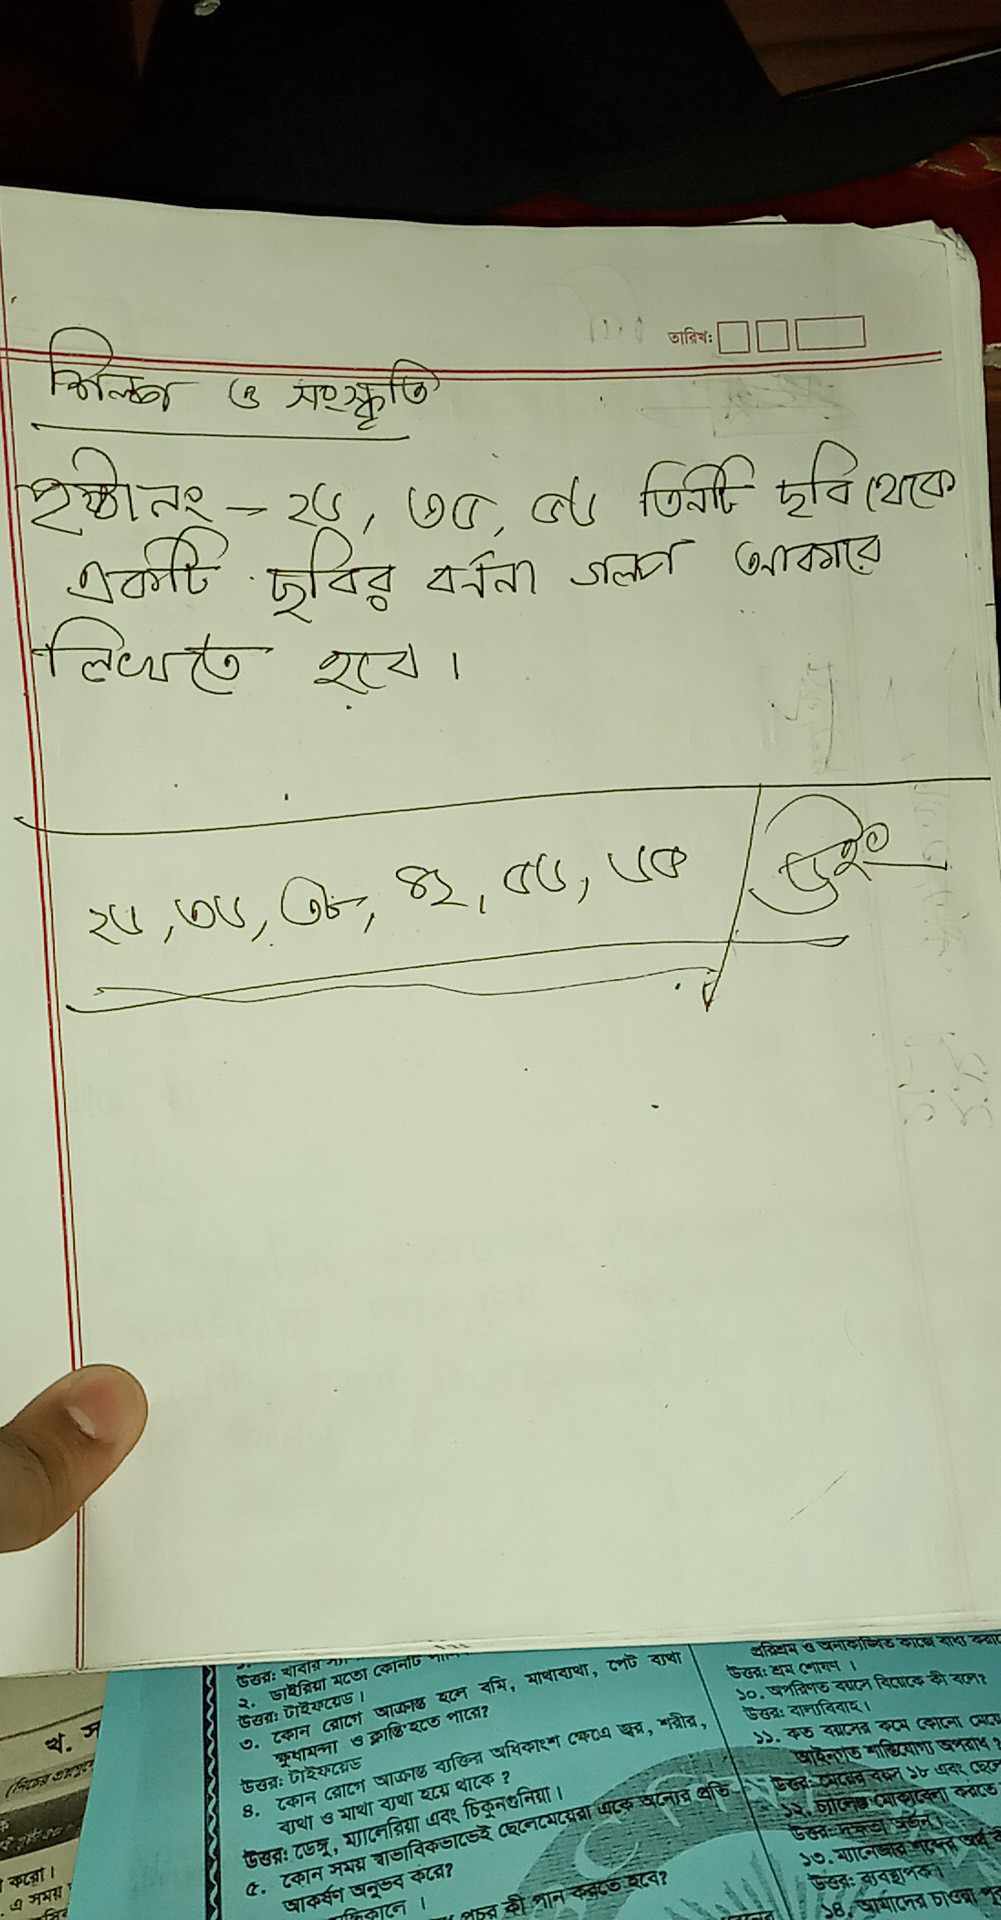 তারিখ:
শিল্প ও সংস্কৃতি
পৃষ্ঠা নং – ২৬, ৩৫, ৫৬ তিনটি ছবি থেকে
একটি ছবির বর্ননা গল্প আকারে
লিখতে হবে।
২৬, ৩৬, ৩৮, ৪২, ৫৬, ৬৫
উত্তর: খাবার
২. ডাইরিয়া মতো কোনটি
উত্তর: টাইফয়েড।
৩. কোন রোগে আক্রান্ত হলে বমি, মাথাব্যথা, পেট ব্যথা
ক্ষুধামন্দা ও ক্লান্তি হতে পারে?
উত্তর: টাইফয়েড
৪. কোন রোগে আক্রান্ত ব্যক্তির অধিকাংশ ক্ষেত্রে জ্বর, শরীর,
ব্যথা ও মাথা ব্যথা হয়ে থাকে?
উত্তর: ডেঙ্গু, ম্যালেরিয়া এবং চিকুনগুনিয়া।
৫. কোন সময় স্বাভাবিকভাবেই ছেলেমেয়েরা একে অন্যের প্রতি
আকর্ষণ অনুভব করে?
কী পান করতে হবে?
পরিশ্রম ও অনাকাঙ্ক্ষিত কাজে বাধ্য করা
উত্তর: শ্রম শোষণ।
১০. অপরিণত বয়সে বিয়েকে কী বলে?
উত্তর: বাল্যবিবাহ।
১১. কত বয়সের কমে কোনো মেয়ে
আইনগত শাস্তিযোগ্য অপরাধ?
উত্তর: মেয়ের বয়স ১৮ এবং ছেলে
১২. চ্যালেঞ্জ মোকাবেলা করতে
উত্তর: দক্ষতা অর্জন।
১৩. ম্যানেজার শব্দের অর্থ
উত্তর: ব্যবস্থাপক।
১৪. আমাদের চাওয়া
খ. স
করো।
এ সময়